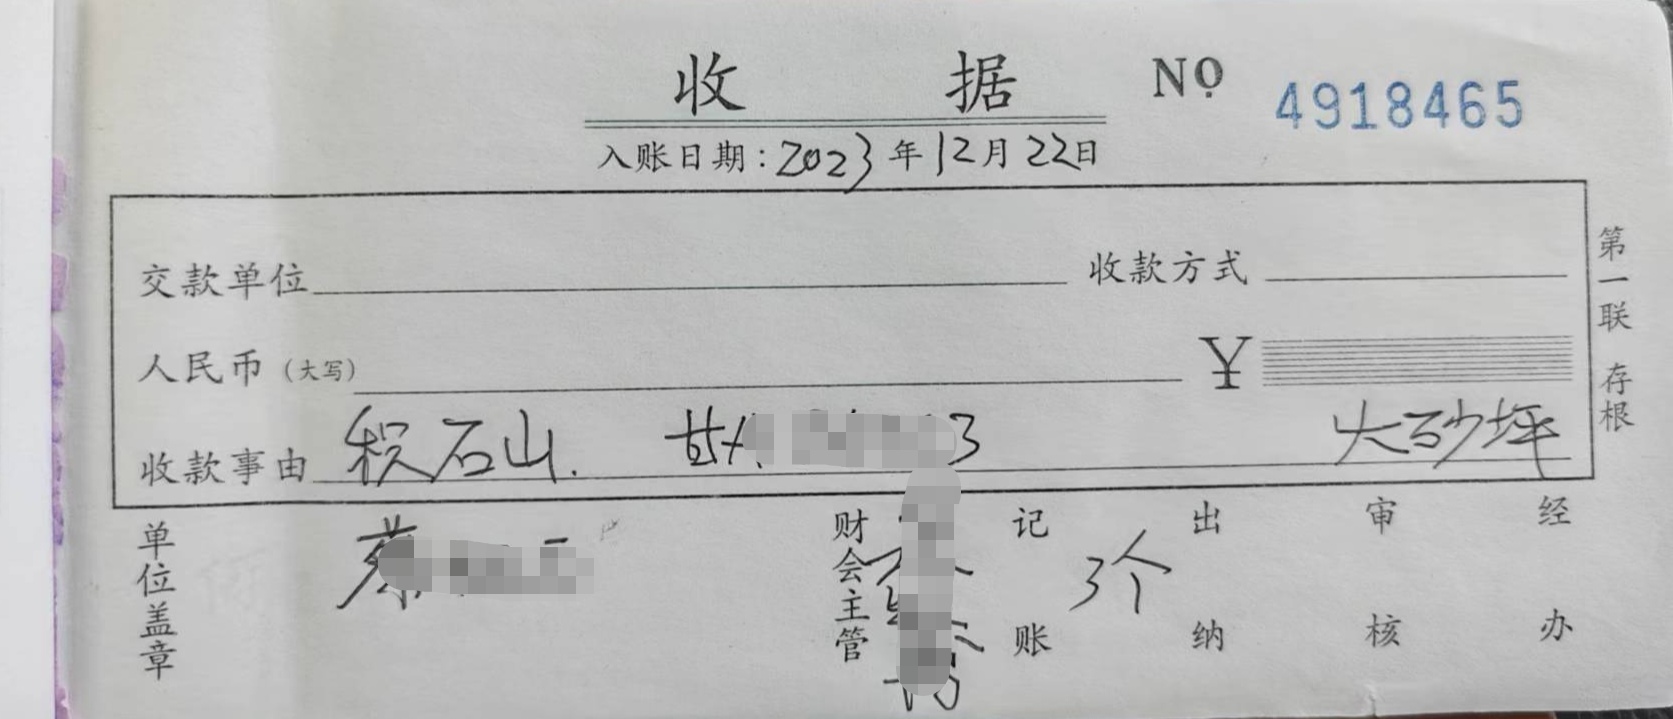 收 据 NO 4918465
入账日期:2023年12月22日
交款单位 收款方式
人民币(大写) ¥
收款事由 积石山. 甘 3 大砂坪
单位盖章 蔡 财会主管 记账 3个 出纳 审核 经办
第一联 存根